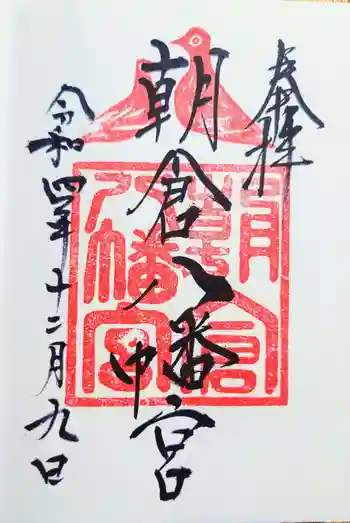 奉拝
朝倉八幡宮
令和四年十二月九日
朝倉
八幡宮